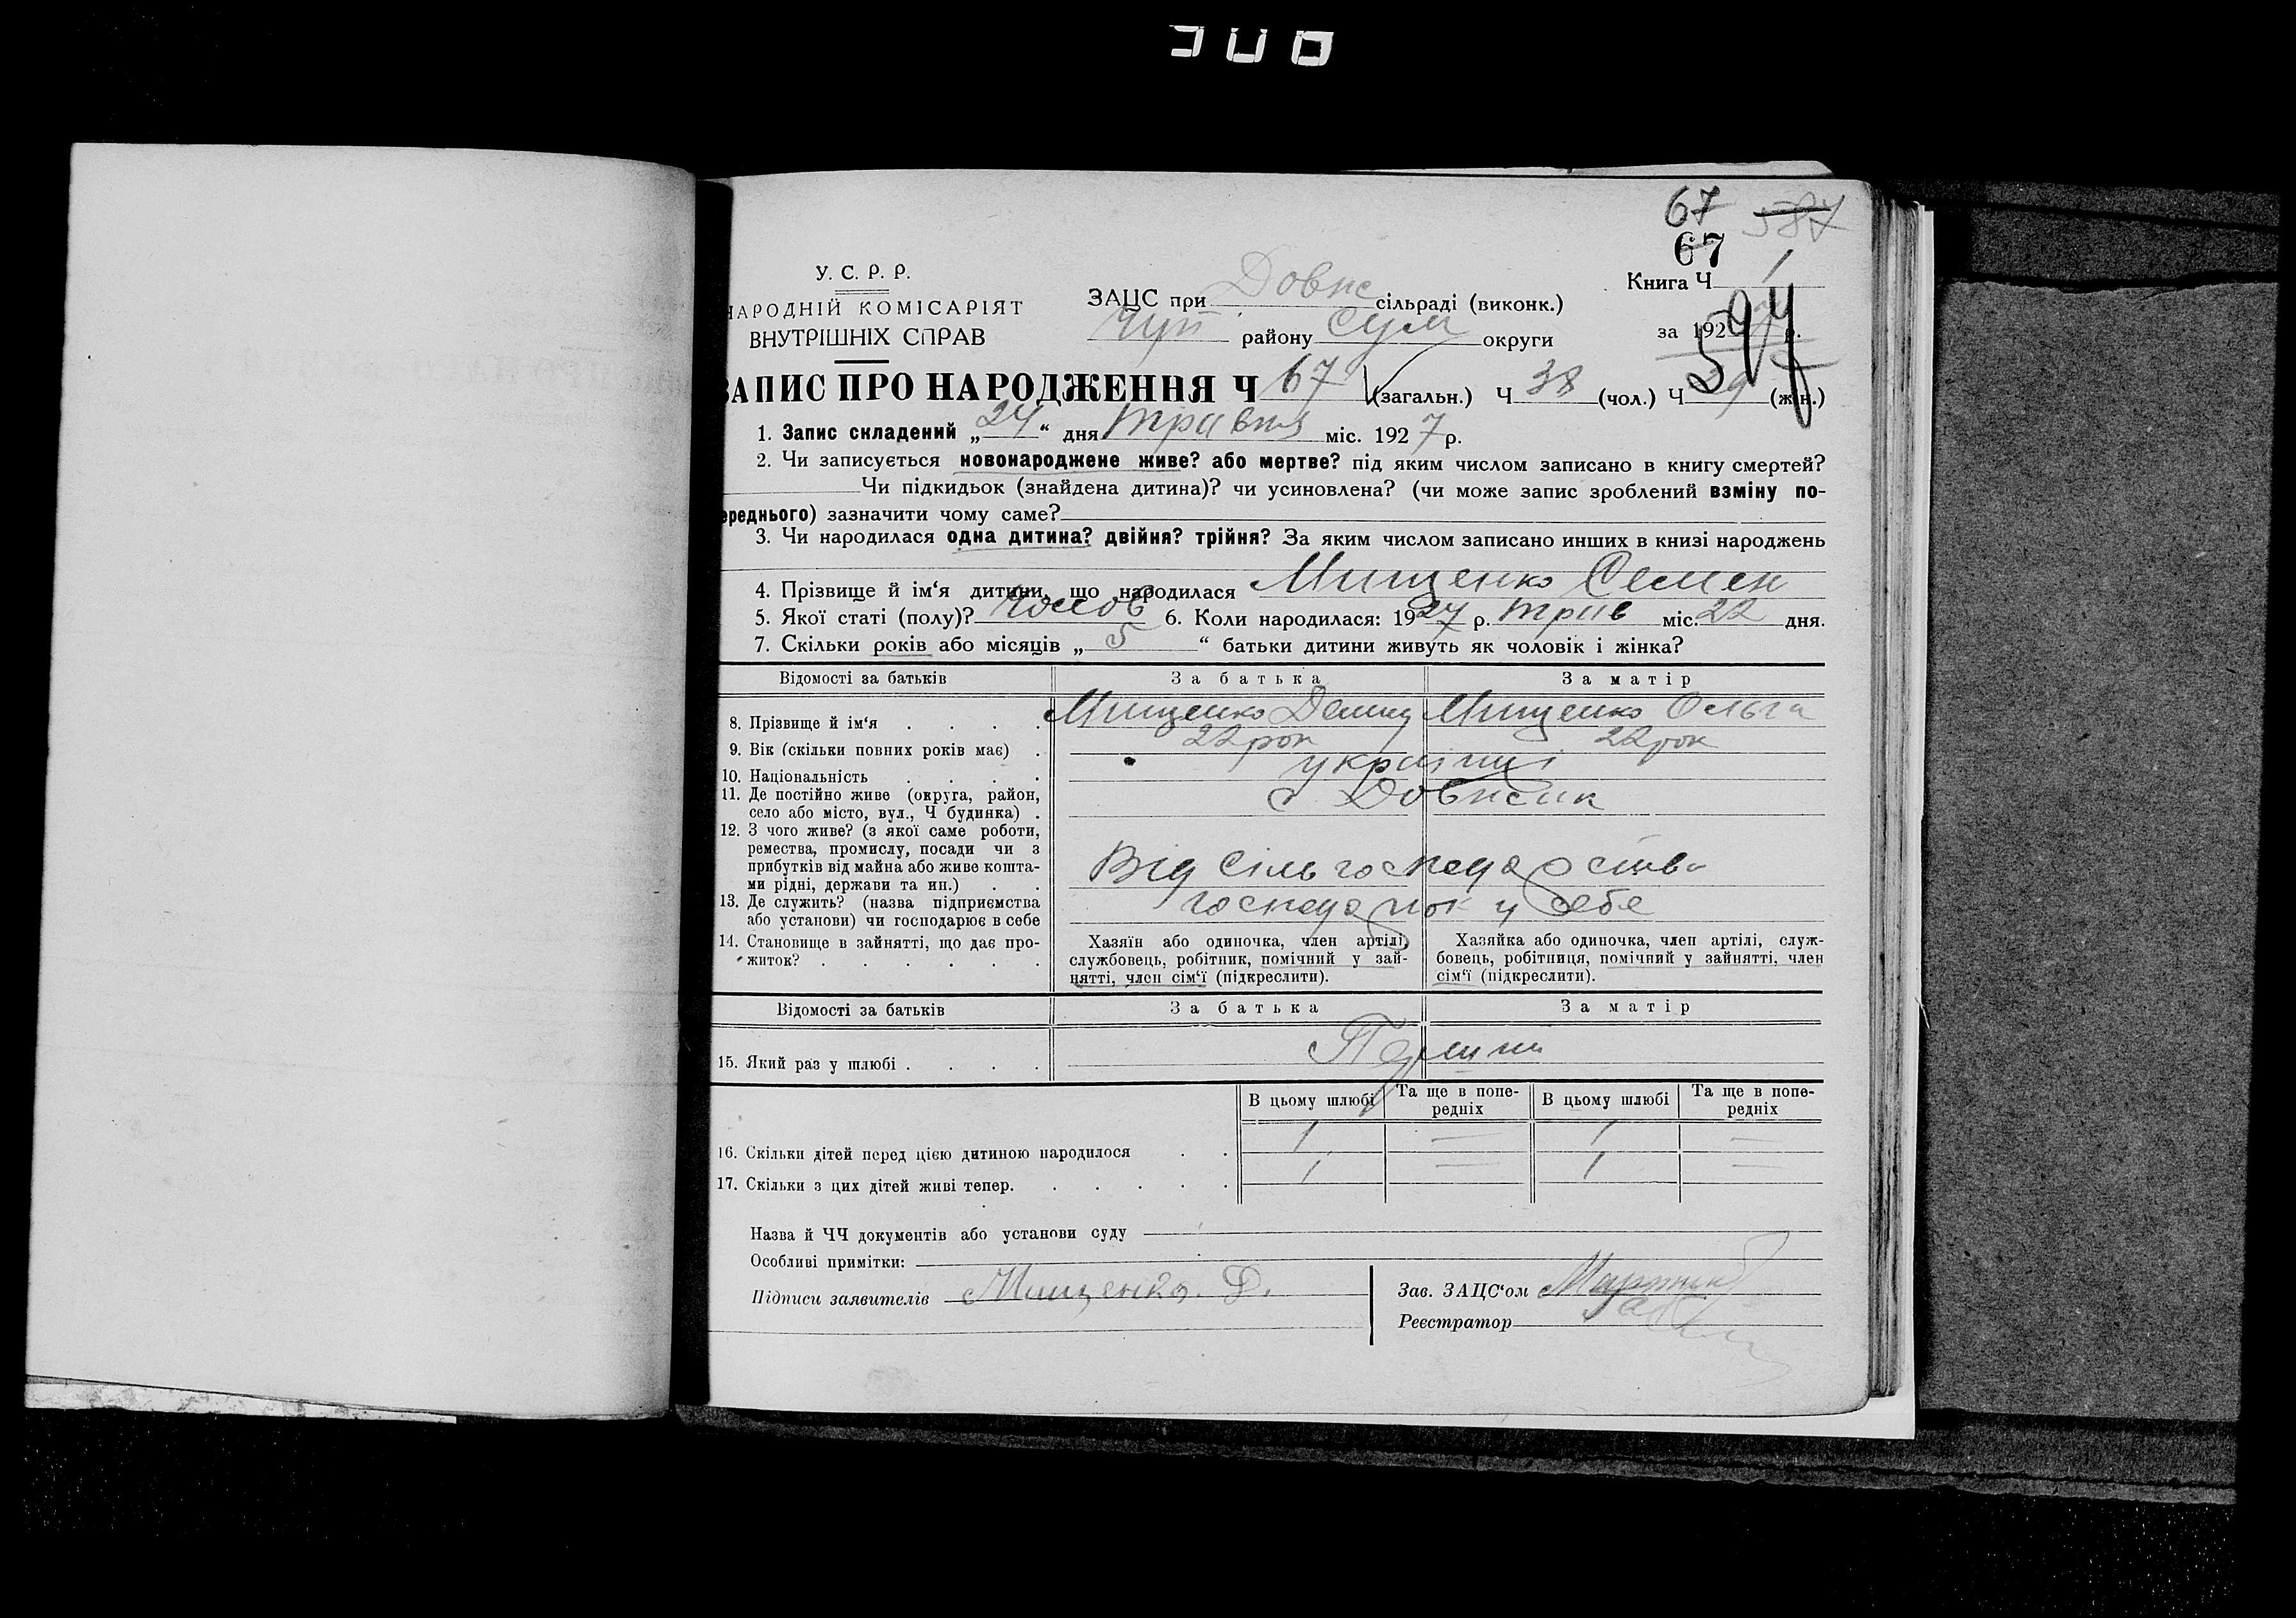 67 587
67
У. С. Р. Р.
НАРОДНІЙ КОМІСАРІЯТ
ВНУТРІШНІХ СПРАВ
ЗАЦС при Довж сільраді (виконк.)
Чуп району Сум округи
Книга Ч 1
за 1927 р.
594
ЗАПИС ПРО НАРОДЖЕННЯ Ч 67 (загальн.) Ч 38 (чол.) Ч 29 (жін.)
1. Запис складений „24“ дня травня міс. 1927 р.
2. Чи записується новонароджене живе? або мертве? під яким числом записано в книгу смертей?
Чи підкидьок (знайдена дитина)? чи усиновлена? (чи може запис зроблений взміну по-
ереднього) зазначити чому саме?
3. Чи народилася одна дитина? двійня? трійня? За яким числом записано инших в книзі народжень
4. Прізвище й ім‘я дитини, що народилася Мищенко Семен
5. Якої статі (полу)? чолов 6. Коли народилася: 1927 р. трав міс. 22 дня.
7. Скільки років або місяців „5“ батьки дитини живуть як чоловік і жінка?
Відомості за батьків За батька За матір
8. Прізвище й ім‘я Мищенко Мищенко Ольга
9. Вік (скільки повних років має) 22 рок 22 рок
10. Національність українці
11. Де постійно живе (округа, район,
село або місто, вул., Ч будинка)
с
12. З чого живе? (з якої саме роботи,
ремества, промислу, посади чи з
прибутків від майна або живе кошта-
ми рідні, держави та ин.)
Від сільгосподарства
13. Де служить? (назва підприємства
або установи) чи господарює в себе
у себе
14. Становище в зайнятті, що дає про-
житок?
Хазяїн або одиночка, член артілі,
службовець, робітник, помічний у зай-
нятті, член сім‘ї (підкреслити).
Хазяйка або одиночка, член артілі, служ-
бовець, робітниця, помічний у зайнятті, член
сім‘ї (підкреслити).
Відомості за батьків За батька За матір
15. Який раз у шлюбі
В цьому шлюбі Та ще в попе-
редніх В цьому шлюбі Та ще в попе-
редніх
16. Скільки дітей перед цією дитиною народилося 1 — 1 —
17. Скільки з цих дітей живі тепер. 1 — 1 —
Назва й ЧЧ документів або установи суду
Особливі примітки:
Підписи заявителів Мищенко. Д.
Зав. ЗАЦС‘ом
Реєстратор